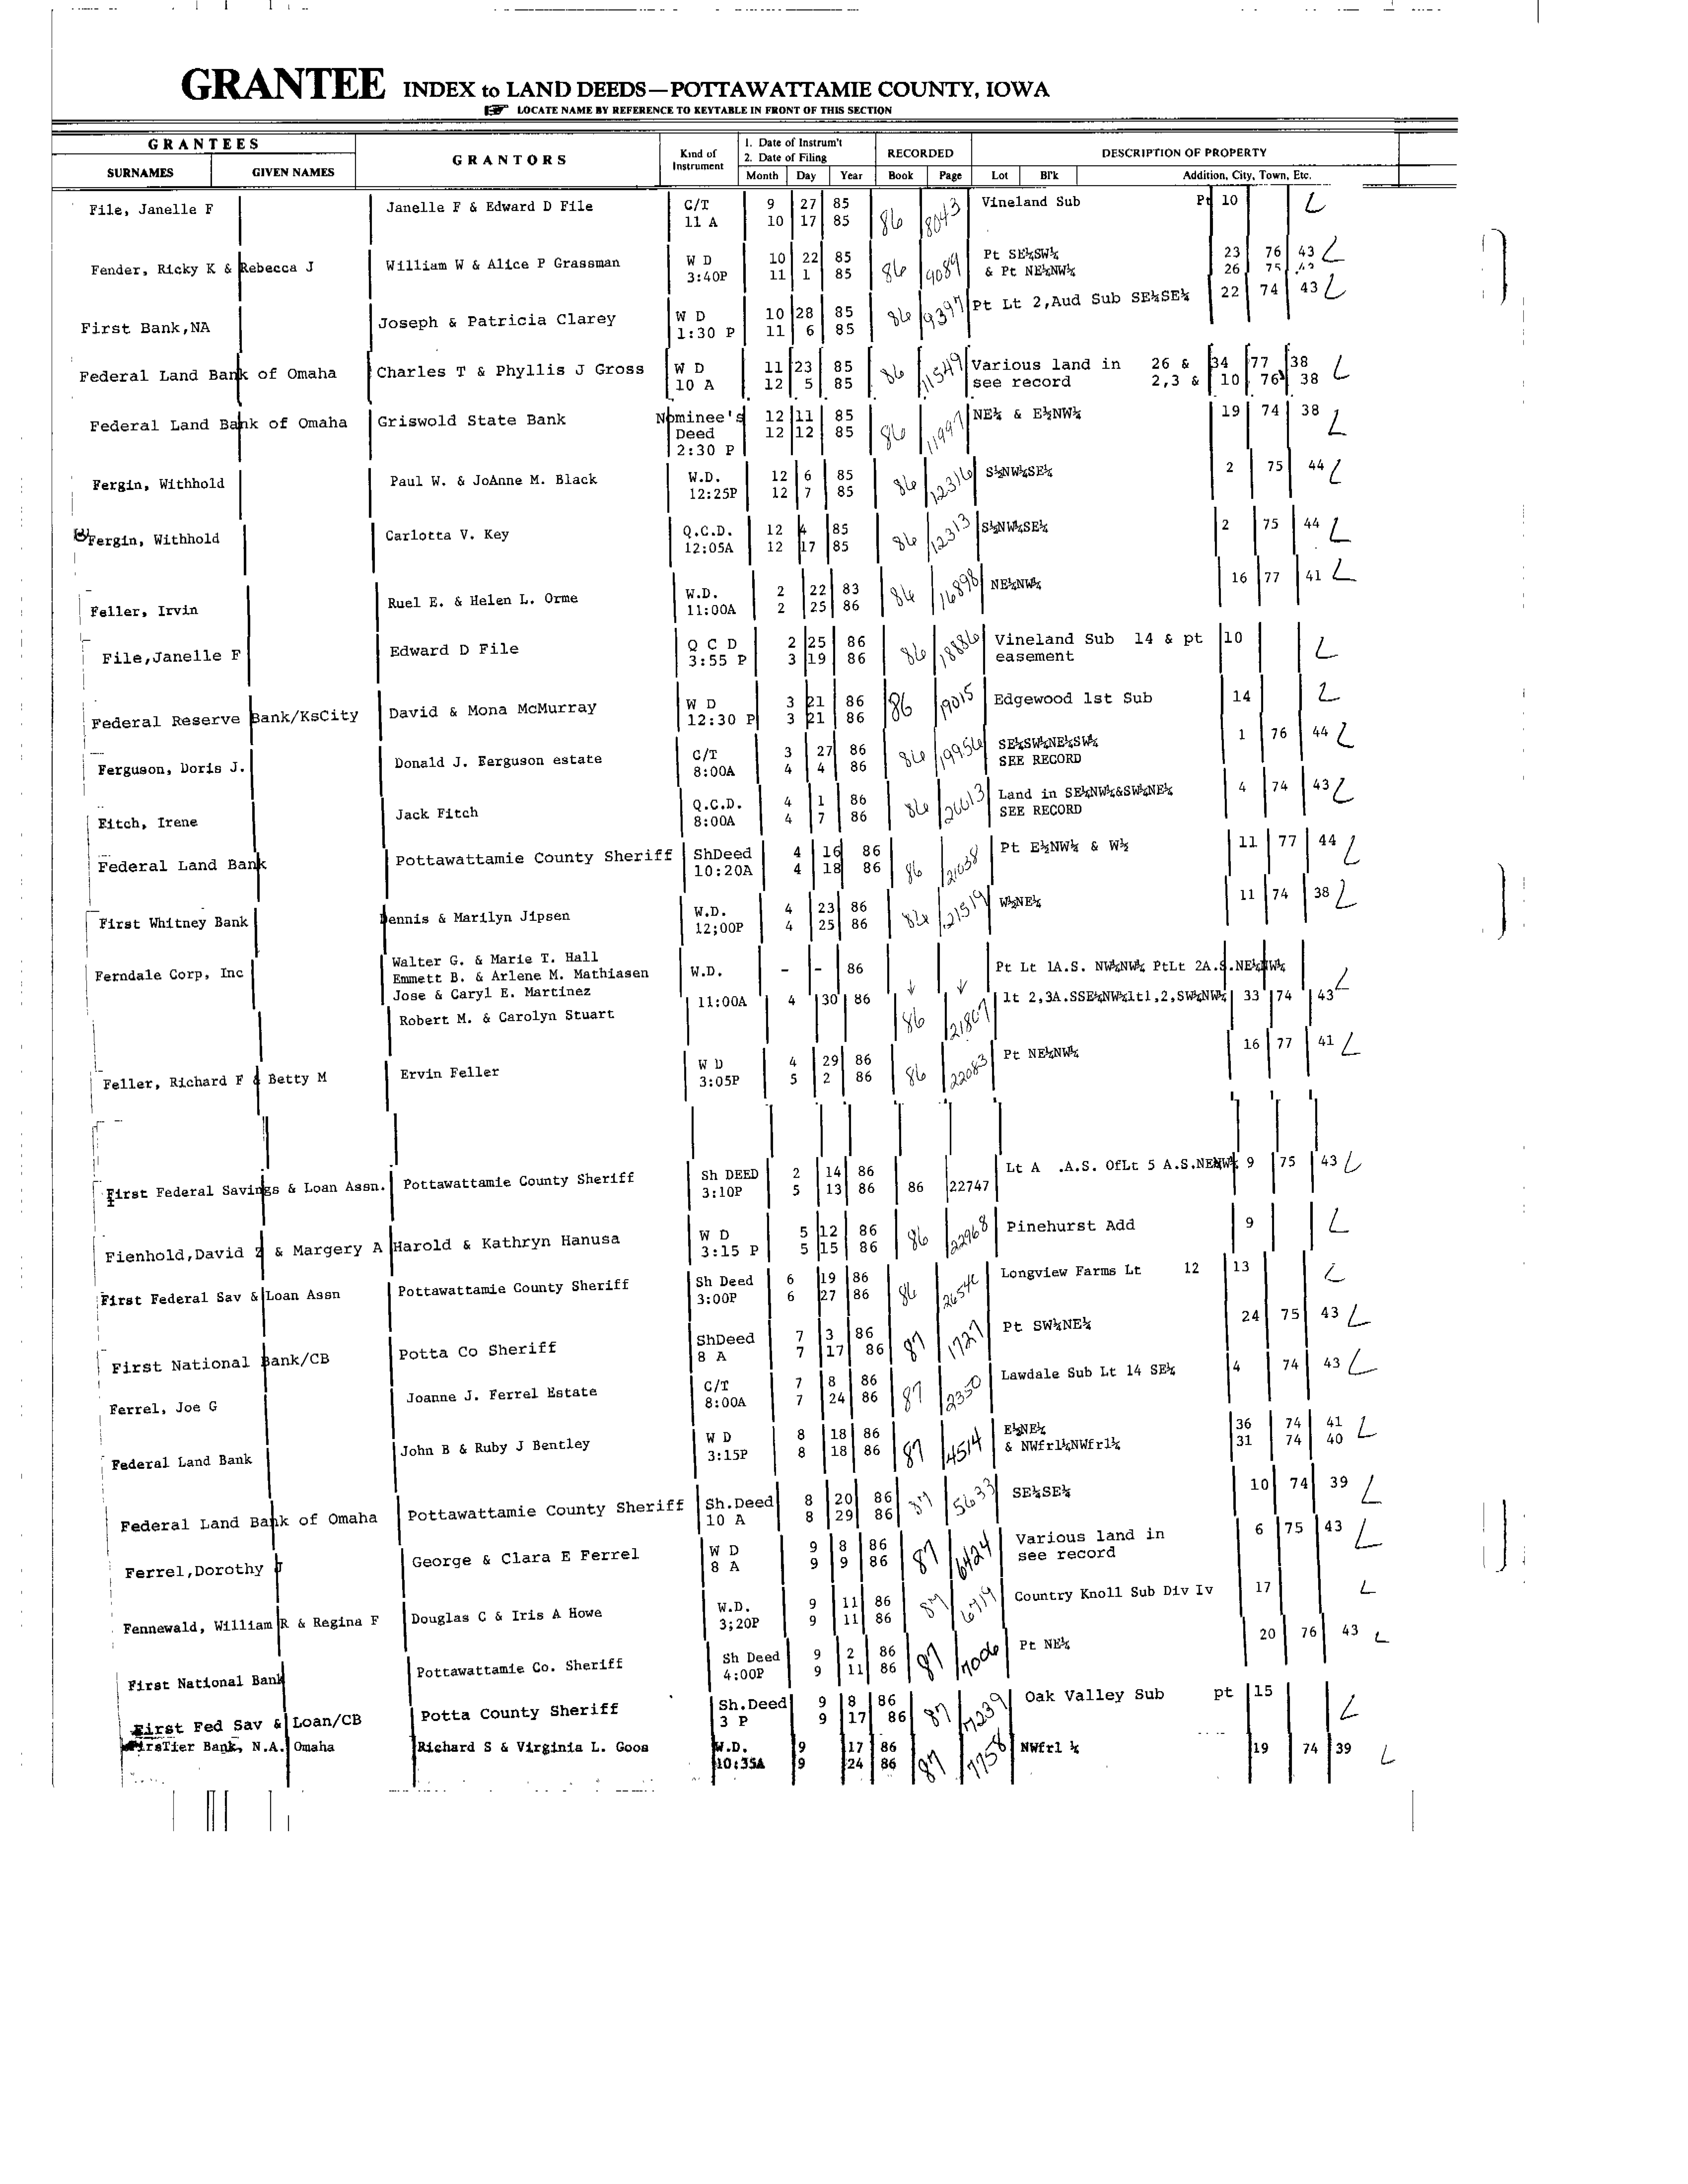 GRANTEE INDEX to LAND DEEDS—POTTAWATTAMIE COUNTY, IOWA
LOCATE NAME BY REFERENCE TO KEYTABLE IN FRONT OF THIS SECTION
GRANTEES GRANTORS Kind of Instrument 1. Date of Instrum't 2. Date of Filing RECORDED DESCRIPTION OF PROPERTY
SURNAMES GIVEN NAMES Month Day Year Book Page Lot Bl'k Addition, City, Town, Etc.
File, Janelle F Janelle F & Edward D File C/T 9 27 85 86 8043 Vineland Sub Pt 10 L
11 A 10 17 85
Fender, Ricky K & Rebecca J William W & Alice P Grassman W D 10 22 85 86 9089 Pt SE¼SW¼ 23 76 43 L
3:40P 11 1 85 & Pt NE¼NW¼ 26 75 43
First Bank,NA Joseph & Patricia Clarey W D 10 28 85 86 9397 Pt Lt 2,Aud Sub SE¼SE¼ 22 74 43 L
1:30 P 11 6 85
Federal Land Bank of Omaha Charles T & Phyllis J Gross W D 11 23 85 86 11549 Various land in 26 & 34 77 38 L
10 A 12 5 85 see record 2,3 & 10 76 38
Federal Land Bank of Omaha Griswold State Bank Nominee's 12 11 85 86 11997 NE¼ & E½NW¼ 19 74 38 L
Deed 12 12 85
2:30 P
Fergin, Withhold Paul W. & JoAnne M. Black W.D. 12 6 85 86 12316 S½NW¼SE¼ 2 75 44 L
12:25P 12 7 85
Fergin, Withhold Carlotta V. Key Q.C.D. 12 4 85 86 12313 S½NW¼SE¼ 2 75 44 L
12:05A 12 17 85
Feller, Irvin Ruel E. & Helen L. Orme W.D. 2 22 83 86 16898 NE¼NW¼ 16 77 41 L
11:00A 2 25 86
File,Janelle F Edward D File Q C D 2 25 86 86 18886 Vineland Sub 14 & pt 10 L
3:55 P 3 19 86 easement
Federal Reserve Bank/KsCity David & Mona McMurray W D 3 21 86 86 19015 Edgewood 1st Sub 14 L
12:30 P 3 21 86
Ferguson, Doris J. Donald J. Ferguson estate C/T 3 27 86 86 19956 SE¼SW¼NE¼SW¼ 1 76 44 L
8:00A 4 4 86 SEE RECORD
Fitch, Irene Jack Fitch Q.C.D. 4 1 86 86 20013 Land in SE¼NW¼&SW¼NE¼ 4 74 43 L
8:00A 4 7 86 SEE RECORD
Federal Land Bank Pottawattamie County Sheriff ShDeed 4 16 86 86 21038 Pt E½NW¼ & W½ 11 77 44 L
10:20A 4 18 86
First Whitney Bank Dennis & Marilyn Jipsen W.D. 4 23 86 86 21519 W½NE¼ 11 74 38 L
12;00P 4 25 86
Walter G. & Marie T. Hall
Ferndale Corp, Inc Emmett B. & Arlene M. Mathiasen W.D. - - 86 Pt Lt 1A.S. NW¼NW¼ PtLt 2A.S.NE¼NW¼ L
Jose & Caryl E. Martinez 11:00A 4 30 86 lt 2,3A.SSE¼NW¼lt1,2,SW¼NW¼ 33 74 43
Robert M. & Carolyn Stuart 86 21807
Feller, Richard F & Betty M Ervin Feller W D 4 29 86 86 22083 Pt NE¼NW¼ 16 77 41 L
3:05P 5 2 86
First Federal Savings & Loan Assn. Pottawattamie County Sheriff Sh DEED 2 14 86 Lt A .A.S. OfLt 5 A.S.NENW¼ 9 75 43 L
3:10P 5 13 86 86 22747
Fienhold,David & Margery A Harold & Kathryn Hanusa W D 5 12 86 86 22968 Pinehurst Add 9 L
3:15 P 5 15 86
First Federal Sav & Loan Assn Pottawattamie County Sheriff Sh Deed 6 19 86 86 Longview Farms Lt 12 13 L
3:00P 6 27 86
First National Bank/CB Potta Co Sheriff ShDeed 7 3 86 87 1727 Pt SW¼NE¼ 24 75 43 L
8 A 7 17 86
Ferrel, Joe G Joanne J. Ferrel Estate C/T 7 8 86 87 2350 Lawdale Sub Lt 14 SE¼ 4 74 43 L
8:00A 7 24 86
Federal Land Bank John B & Ruby J Bentley W D 8 18 86 87 4514 E½NE¼ 36 74 41 L
3:15P 8 18 86 & NWfrl¼NWfrl¼ 31 74 40
Federal Land Bank of Omaha Pottawattamie County Sheriff Sh.Deed 8 20 86 87 5633 SE¼SE¼ 10 74 39 L
10 A 8 29 86
Ferrel,Dorothy J George & Clara E Ferrel W D 9 8 86 87 6424 Various land in 6 75 43 L
8 A 9 9 86 see record
Fennewald, William R & Regina F Douglas C & Iris A Howe W.D. 9 11 86 87 6719 Country Knoll Sub Div Iv 17 L
3;20P 9 11 86
First National Bank Pottawattamie Co. Sheriff Sh Deed 9 2 86 87 7006 Pt NE¼ 20 76 43 L
4:00P 9 11 86
First Fed Sav & Loan/CB Potta County Sheriff Sh.Deed 9 8 86 87 7239 Oak Valley Sub pt 15 L
3 P 9 17 86
FirsTier Bank, N.A. Omaha Richard S & Virginia L. Goos W.D. 9 17 86 87 7758 NWfrl ¼ 19 74 39 L
10:35A 9 24 86